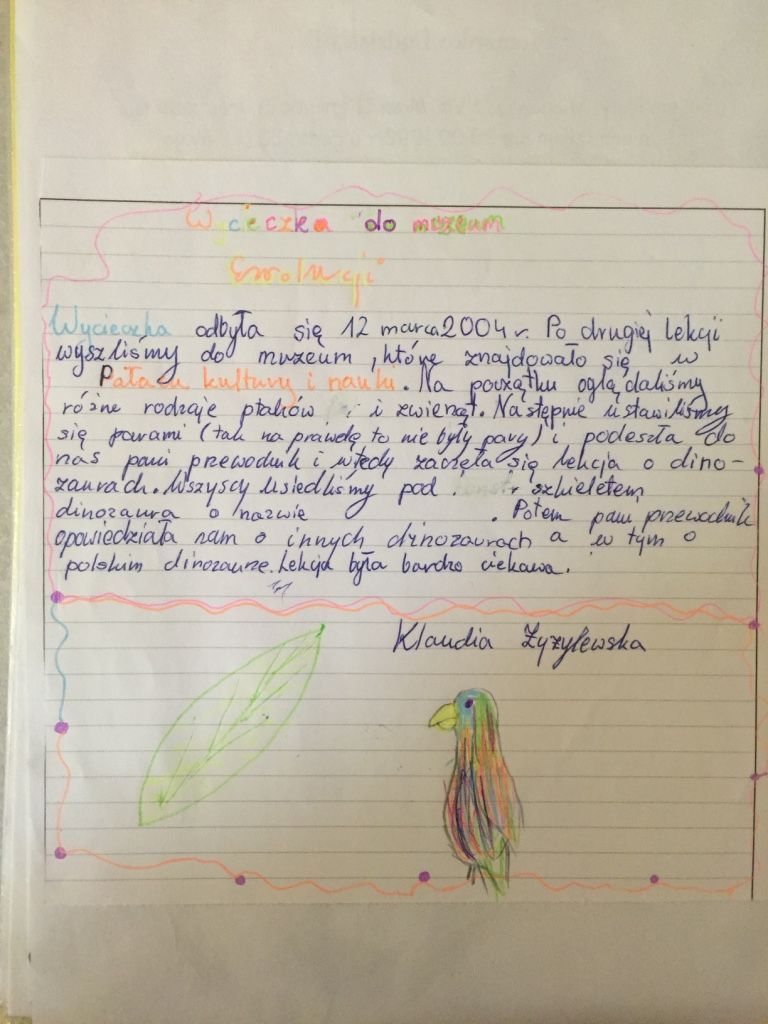 Wycieczka do muzeum
Ewolucji
Wycieczka odbyła się 12 marca 2004 r. Po drugiej lekcji
wyszliśmy do muzeum, które znajdowało się w
Pałacu kultury i nauki. Na początku oglądaliśmy
różne rodzaje ptaków i zwierząt. Następnie ustawiliśmy
się parami (tak na prawdę to nie były pary) i podeszła do
nas pani przewodnik i wtedy zaczęła się lekcja o dino-
zaurach. Wszyscy usiedliśmy pod szkieletem
dinozaura o nazwie . Potem pani przewodnik
opowiedziała nam o innych dinozaurach a w tym o
polskim dinozaurze. Lekcja była bardzo ciekawa.
Klaudia Żyzylewska